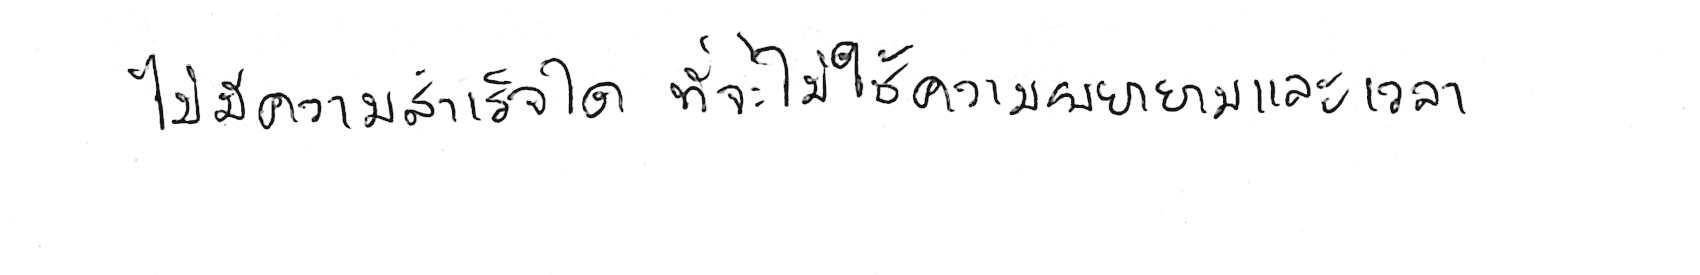 ไม่มีความสำเร็จใด ที่จะไม่ใช้ความพยายามและเวลา